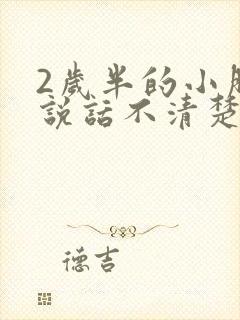 2歲半的小
說話不清楚
德吉